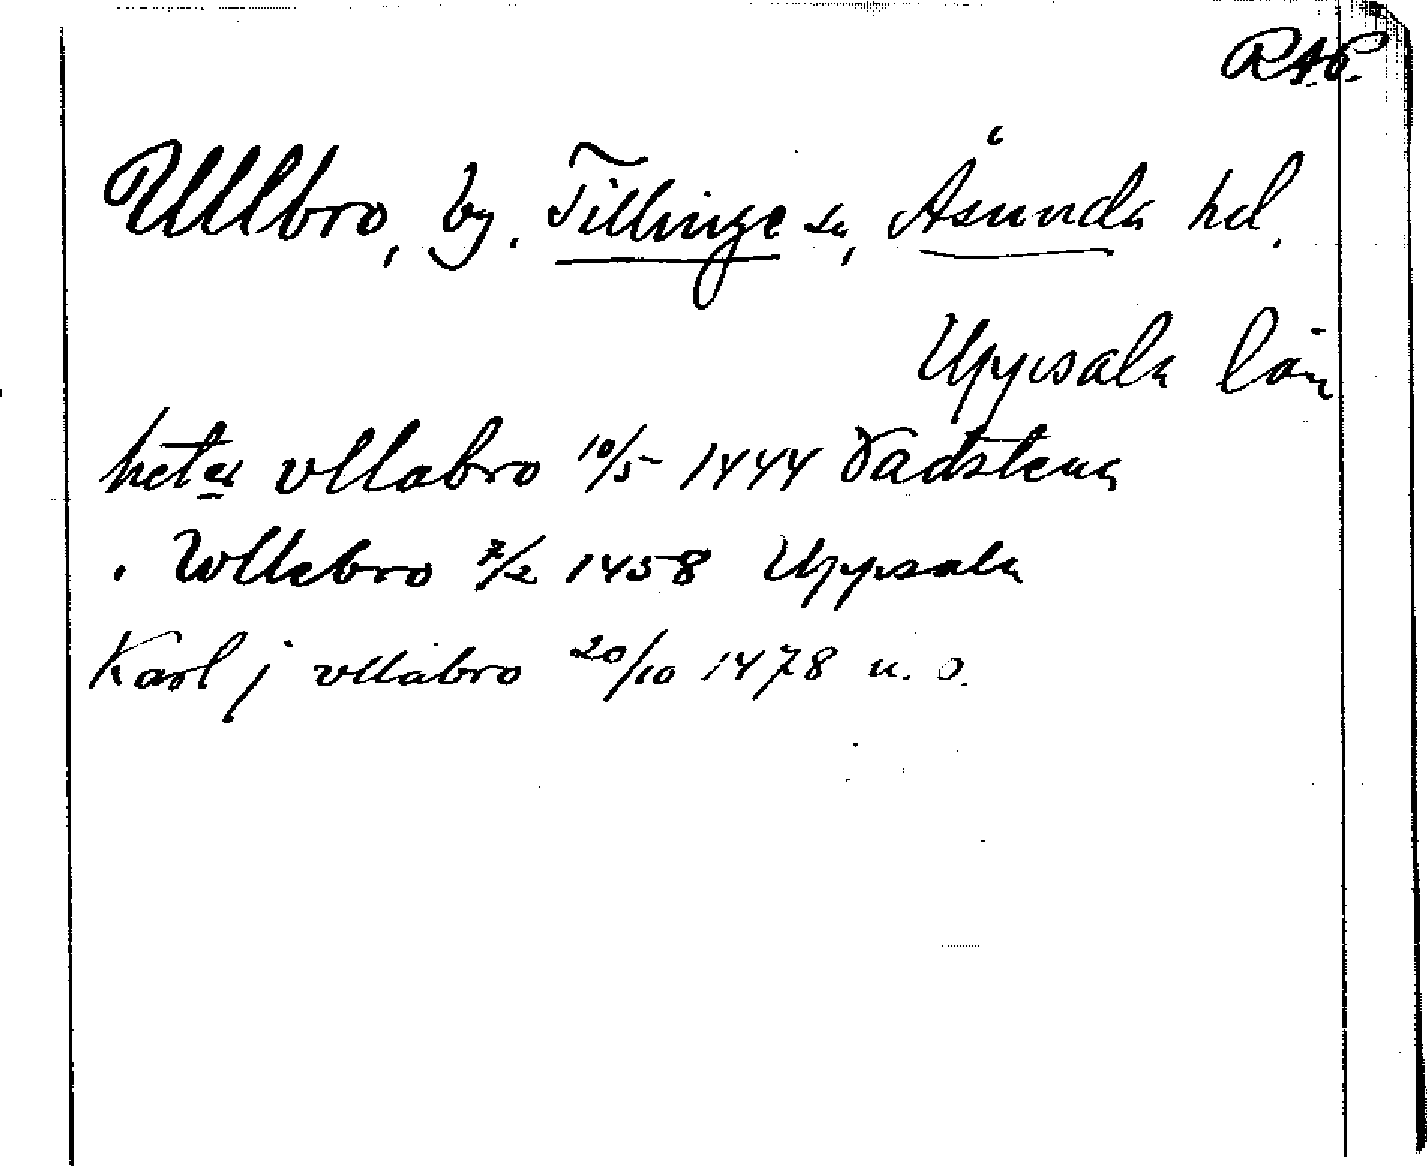 RAP.
Ullbro, by. Tillinge sn, Åsunda hd.
Uppsala län
heter vllabro 10/5 1444 Vadstena
. Wllebro 7/2 1458 Uppsala
Karl j vllabro 20/10 1478 u. o.